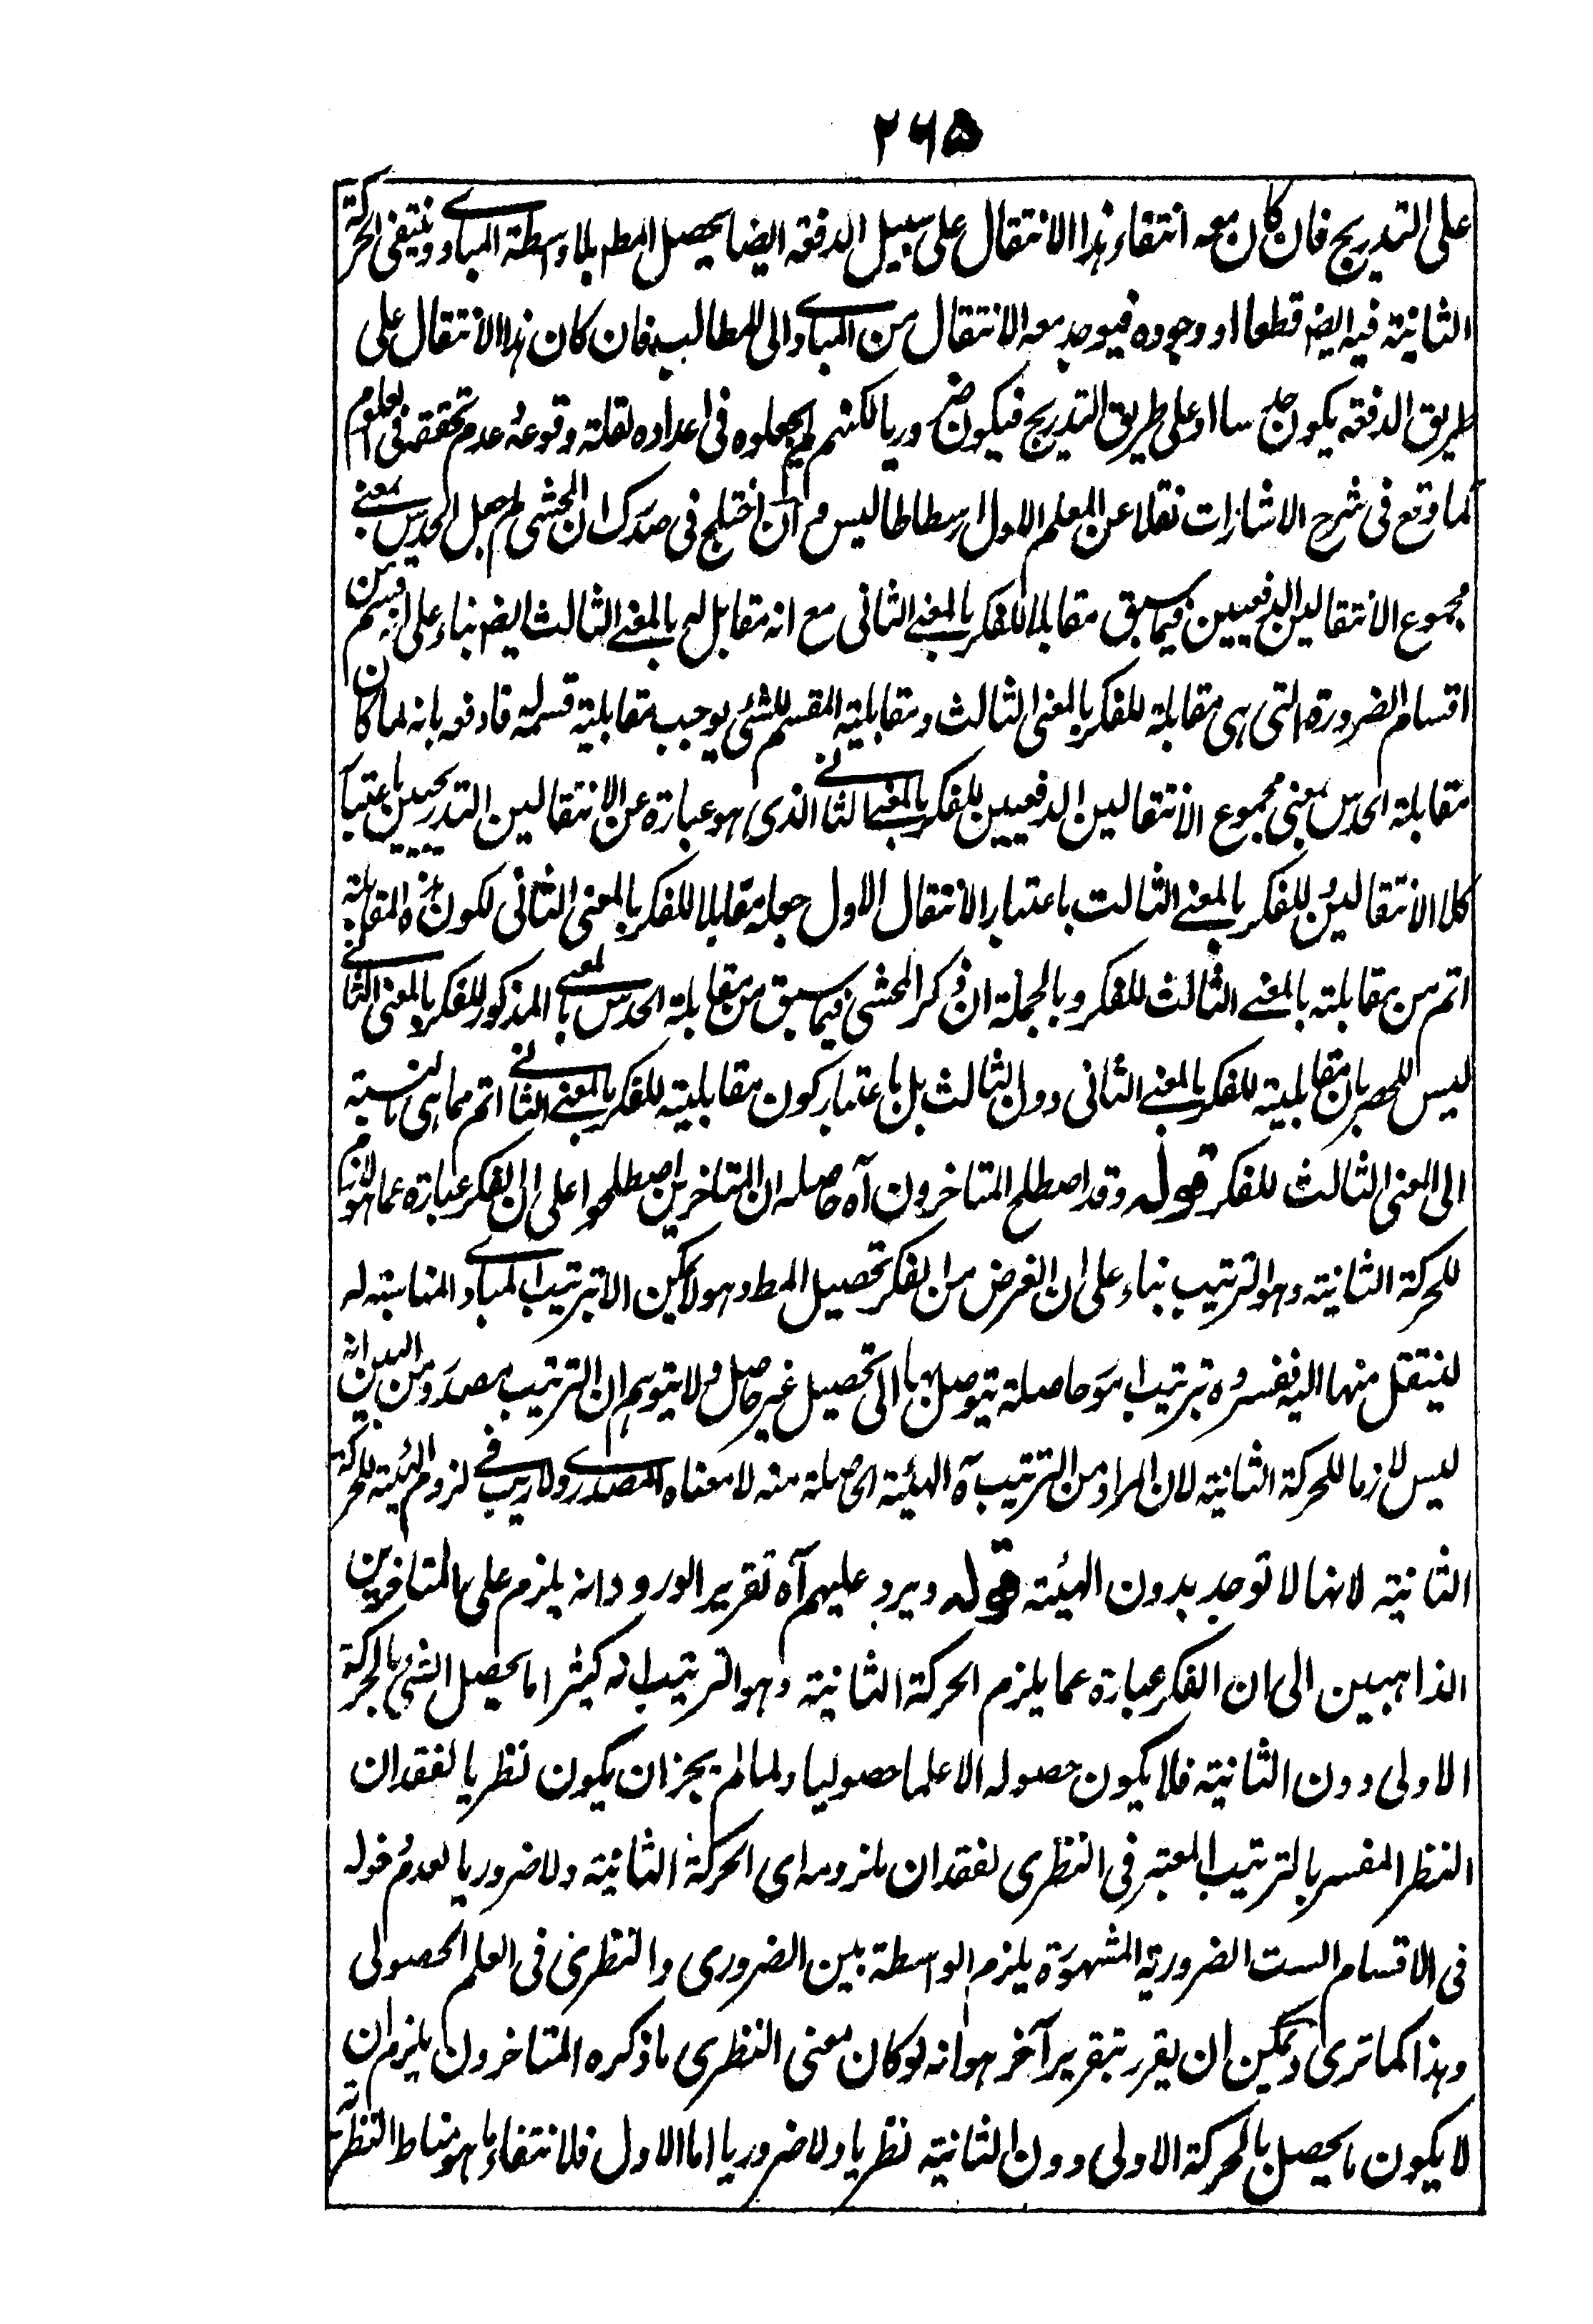 ٢٦٥
على التدريج فان كان معه انتفاء هذا الانتقال على سبيل الدفعة ايضا يحصل المطم بلا واسطة المبادى وينتفى الحركة
الثانية فيه ايضه قطعا او وجوده فيوجد معه الانتقال من المبادى الى للمطالب فان كان هذا الانتقال على
طريق الدفعة يكون حدسا او على طريق التدريج فيكون ضروريا لكنهم لم يجعلوه فى اعداده لقلة وقوعه وعدم تحققه فى العلوم
كما وقع فى شرح الاشارات نقلا عن المعلم الاول ارسطاطاليس م ان اختلج فى صدرك ان المحشى لم جعل الحدس بمعنى
مجموع الانتقالين الدفعيين فيما سبق مقابلا للفكر بالمعنى الثانى مع انه مقابل له بالمعنى الثالث ايضه بناء على انه قسم من
اقسام الضرورة التى هى مقابلة للفكر بالمعنى الثالث ومقابلية المقسم للشئ يوجب مقابلية قسمه له فادفعه بانه لما كان
مقابلة الحدس بمعنى مجموع الانتقالين الدفعيين للفكر بالمعنى الثانى الذى هو عبارة عن الانتقالين التدريجيين باعتبار
كلا الانتقالين وللفكر بالمعنى الثالث باعتبار الانتقال الاول جعله مقابلا للفكر بالمعنى الثانى لكون هذه المقابلة
اتم من مقابلته بالمعنى الثالث للفكر وبالجملة ان ذكر المحشى فيما سبق من مقابلة الحدس بالمعنى المذكور للفكر بالمعنى الثانى
ليس للحصر بان مقابليته للفكر بالمعنى الثانى دون الثالث بل باعتبار كون مقابليته للفكر بالمعنى الثانى اتم مما هى بالنسبة
الى المعنى الثالث للفكر قوله وقد اصطلح المتاخرون آه حاصله ان المتاخرين اصطلحوا على ان الفكر عبارة عما هو لازم
للحركة الثانية وهو الترتيب بناء على ان الغرض من الفكر تحصيل المط وهو لا يمكن الا بترتيب المبادى المناسبة له
لينتقل منها اليه ففسروه بترتيب امور حاصلة يتوصل بها الى تحصيل غير حاصل ولا يتوهم ان الترتيب مصدر ومن البين انه
ليس لازما للحركة الثانية لان المراد من الترتيب آه الهيئة الحاصلة منه لا معناه المصدرى ولا ريب فى لزوم الهيئة للحركة
الثانية لانها لا توجد بدون الهيئة قوله ويرد عليهم آه تقرير الورود انه يلزم على المتاخرين
الذاهبين الى ان الفكر عبارة عما يلزم الحركة الثانية وهو الترتيب انه كثيرا ما يحصل الشئ بالحركة
الاولى دون الثانية فلا يكون حصوله الا علما حصوليا ولما لم يجز ان يكون نظريا لفقدان
النظر المفسر بالترتيب المعتبر فى النظرى لفقدان ملزومه اى الحركة الثانية ولا ضروريا لعدم دخوله
فى الاقسام الست الضرورية المشهورة يلزم الواسطة بين الضرورى والنظرى فى العلم الحصولى
وهذا كما ترى ويمكن ان يقرر بتقرير آخر هو انه لو كان معنى النظرى ما ذكره المتاخرون يلزم ان
لا يكون ما يحصل بالحركة الاولى دون الثانية نظريا ولا ضروريا اما الاول فلانتفاء ما هو مناط النظرية